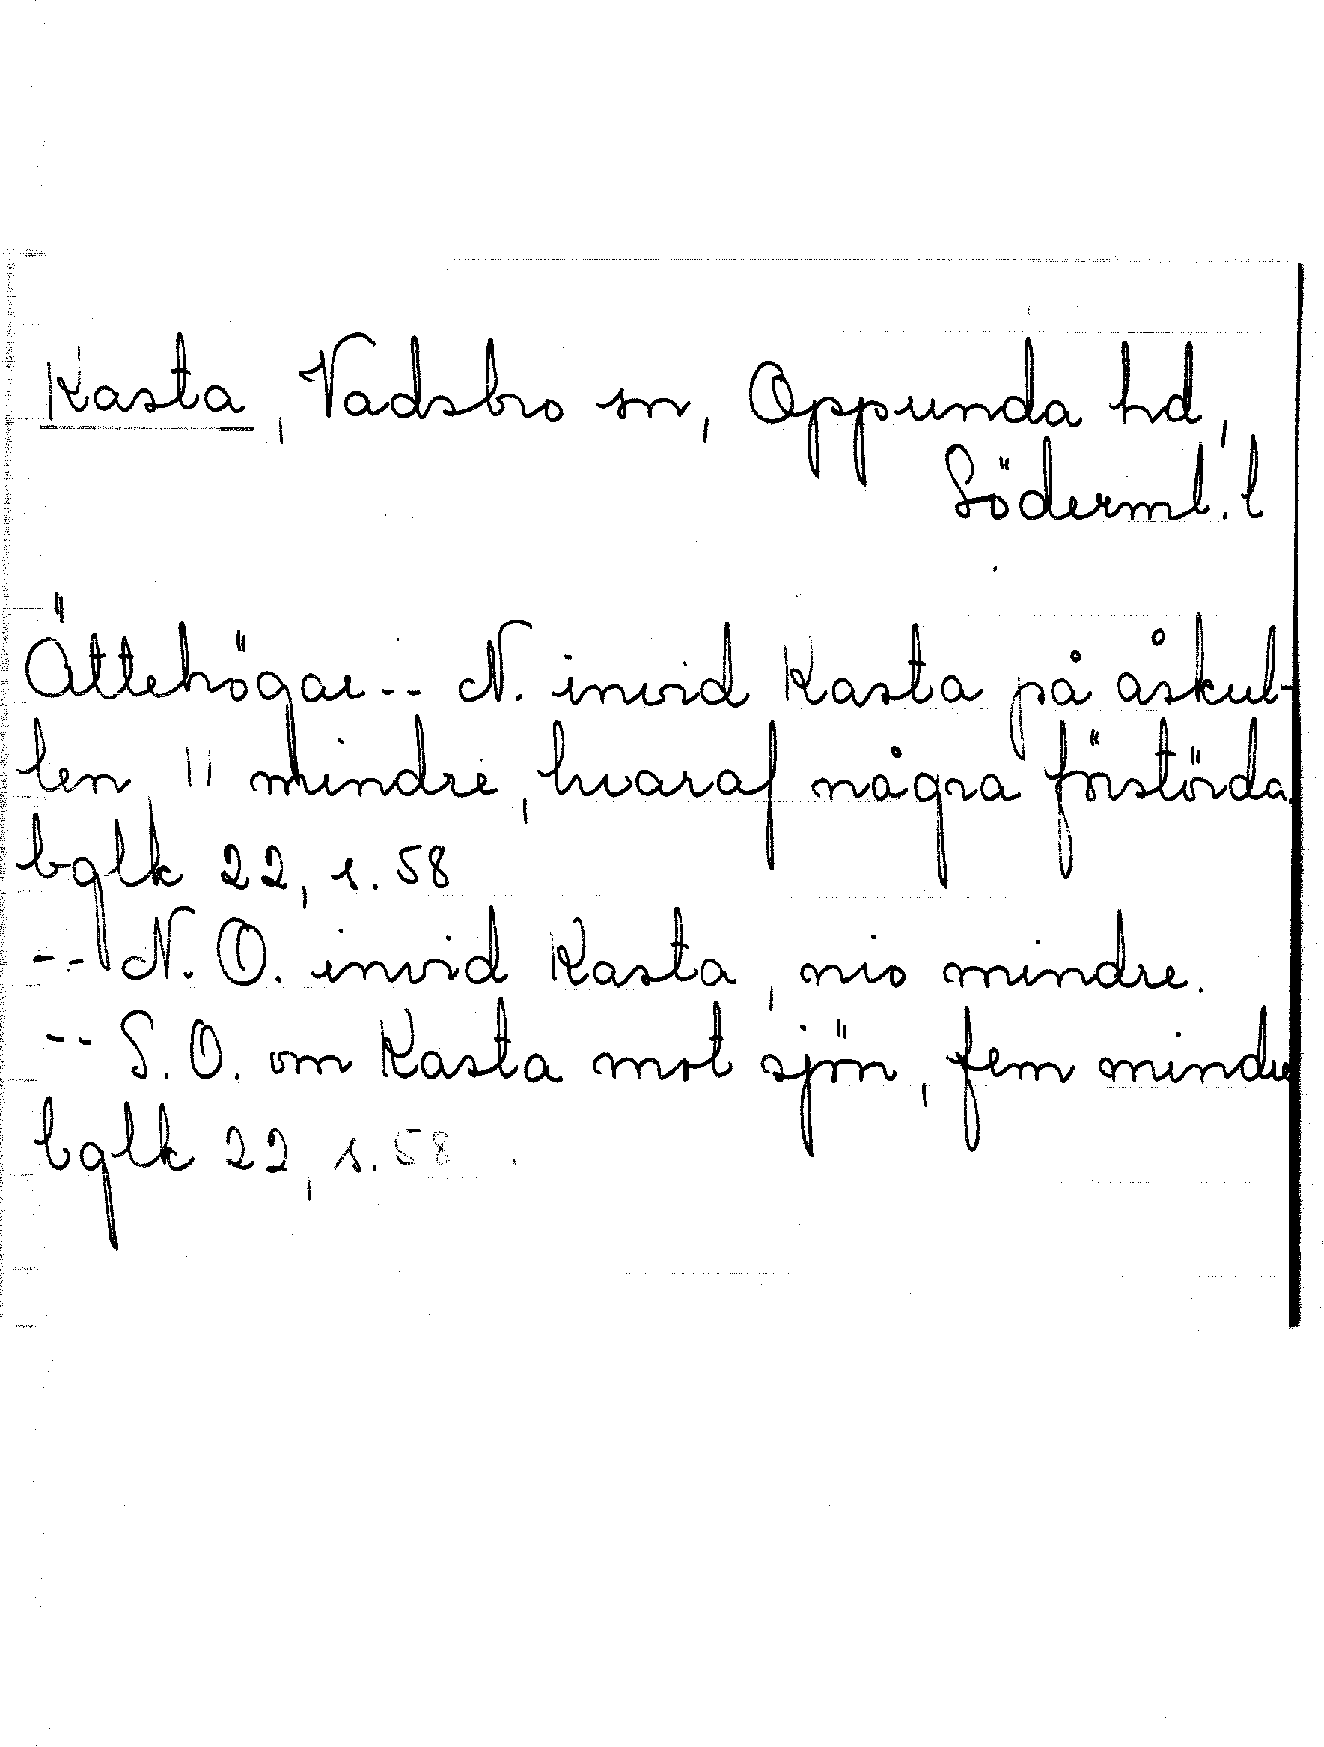 Kasta, Vadsbro sn, Oppunda hd,
Söderml. l
Ättehögar -- N. invid Kasta på åskul-
len, 11 mindre, hvaraf några förstörda.
bglk 22, s. 58
-- N. O. invid Kasta, nio mindre.
-- S. O. om Kasta mot sjön, fem mindre
bglk 22, s. 58.